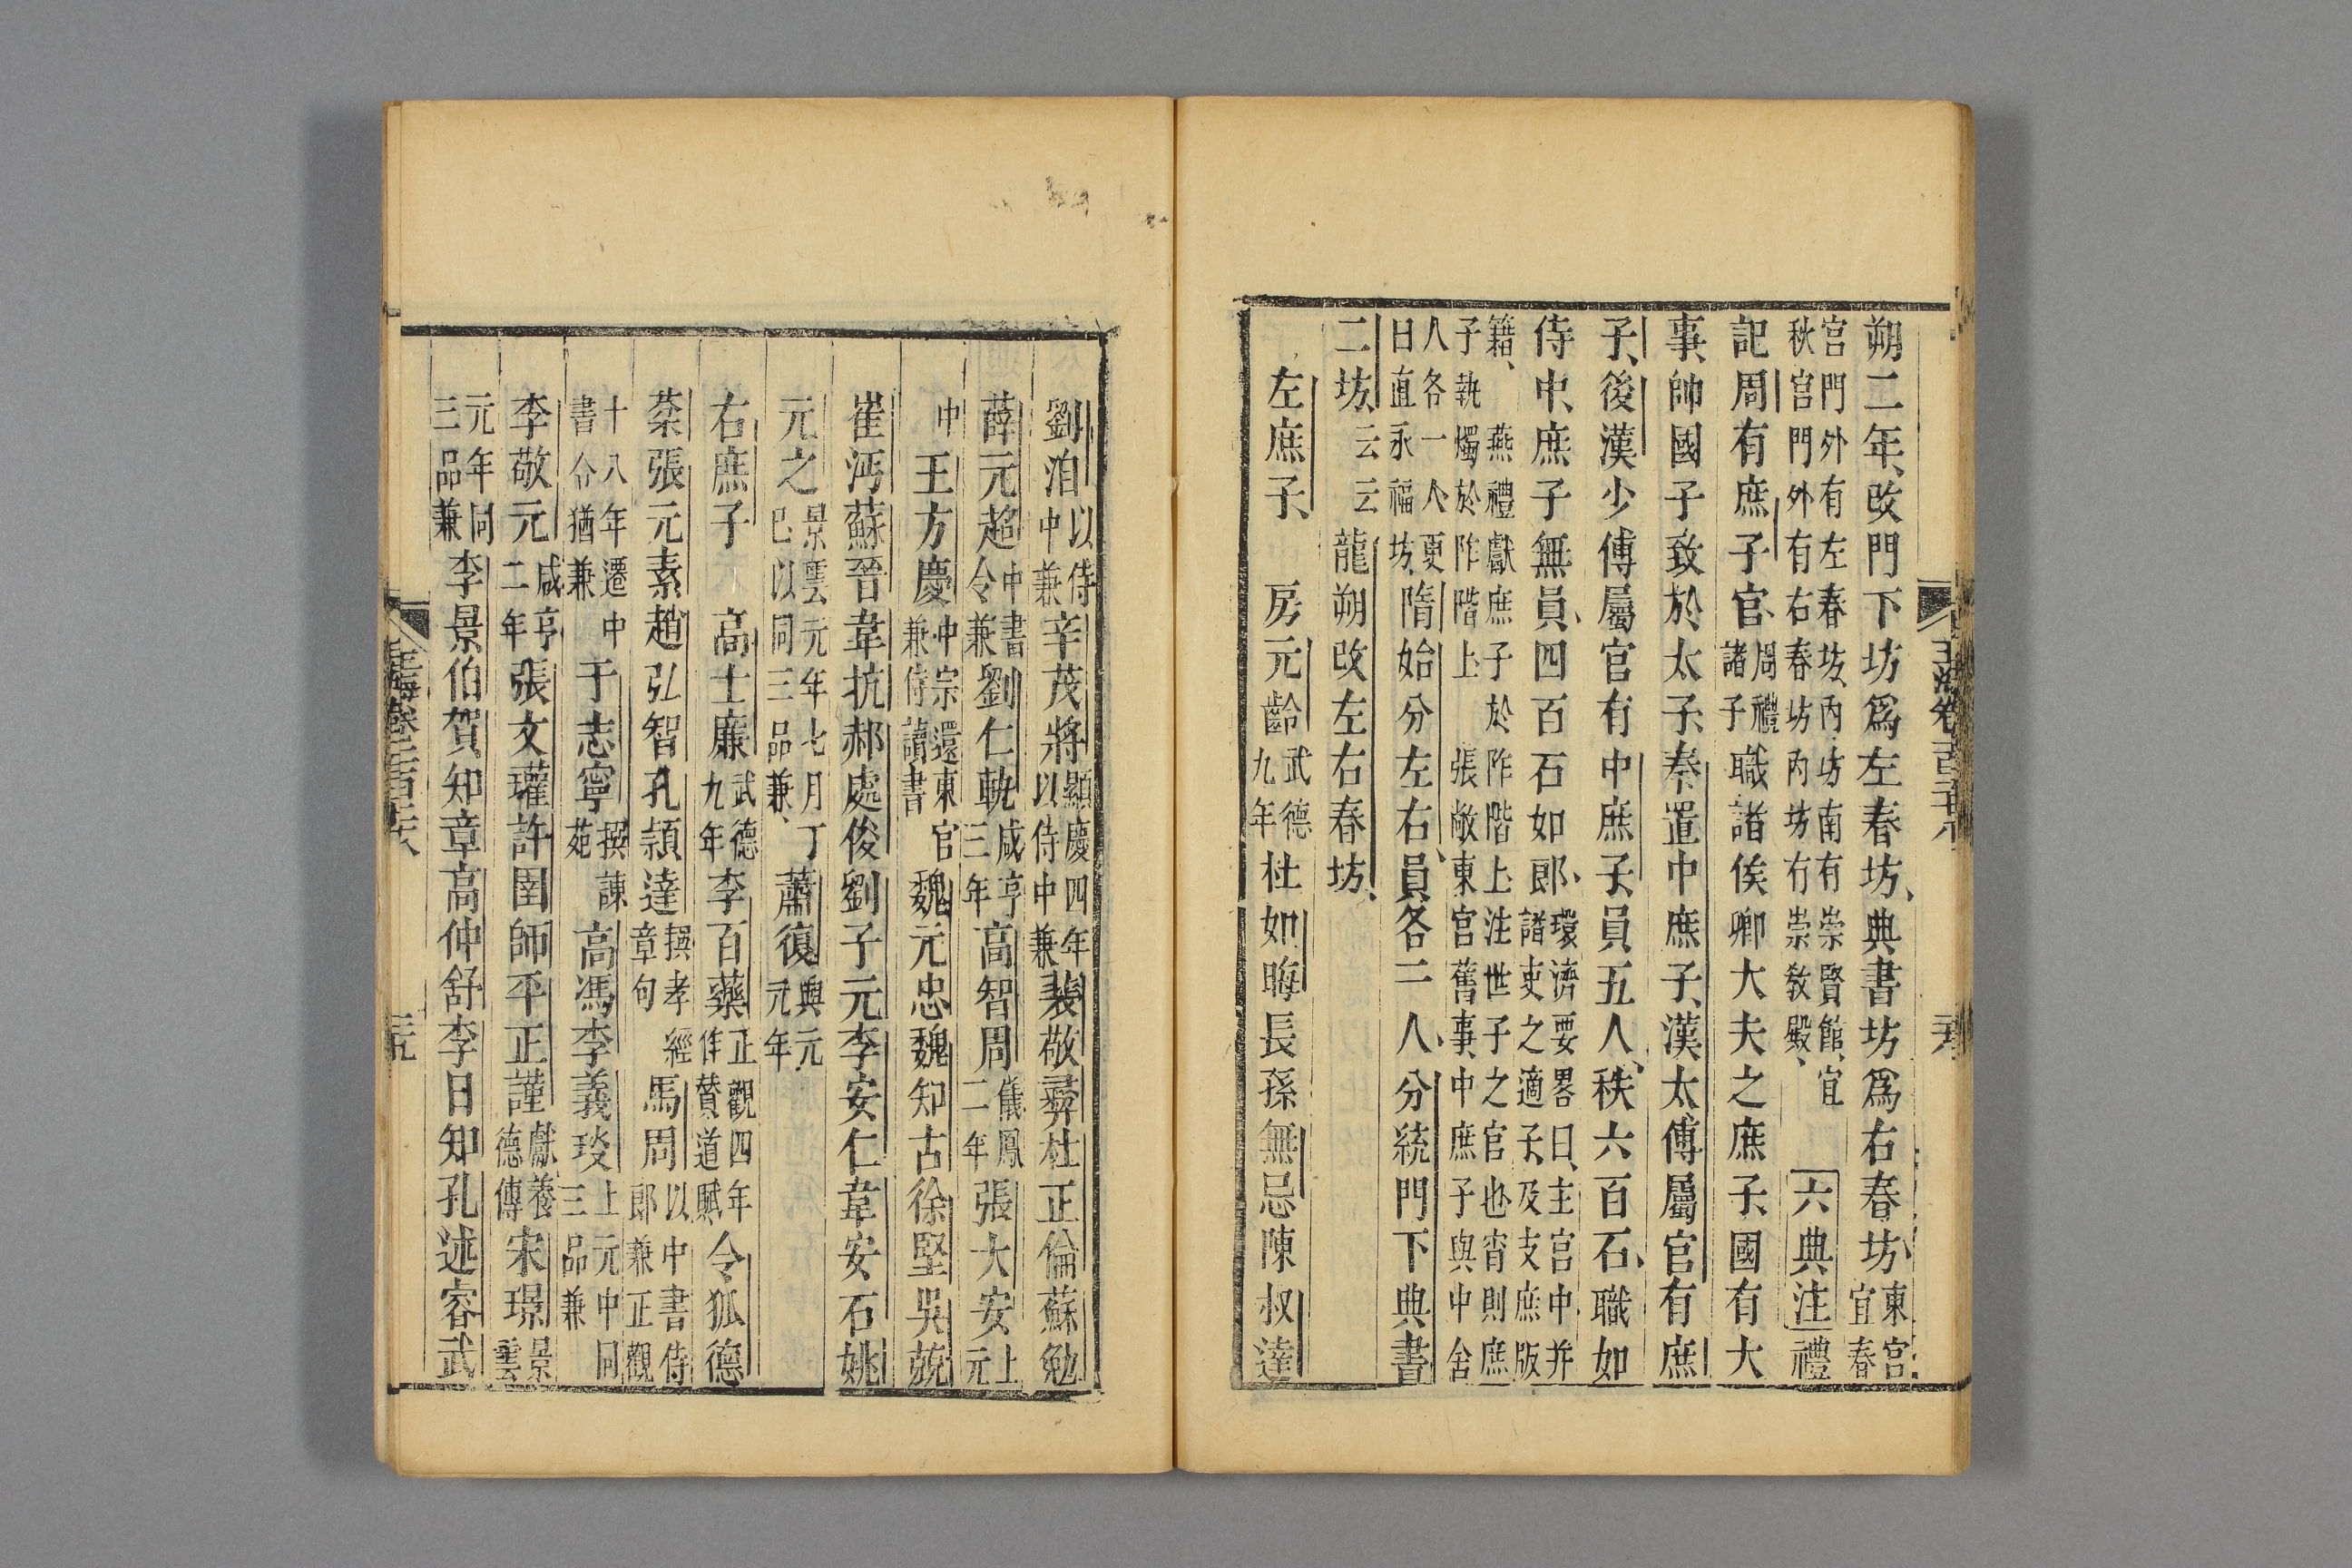 朔二年、改門下坊爲左春坊、典書坊爲右春坊、東宮宜春
宮門外有左春坊、內坊南有崇賢館、宜秋宮門外有右春坊內坊右崇敎殿、六典注禮
記周有庶子官、周禮諸子職諸侯卿大夫之庶子、國有大
事、帥國子致於太子、秦置中庶子、漢太傅屬官有庶
子、後漢少傅屬官有中庶子、員五人、秩六百石、職如
侍中、庶子無員、四百石如郎、環濟要畧曰、主宮中并諸吏之適子、及支庶版
籍、燕禮獻庶子於阼階上注世子之官也宵則庶子執燭於阼階上張敞東宮舊事、中庶子與中舍
人各一人更日直永福坊、隋始分左右、員各二人、分統門下典書
二坊、云云龍朔改左右春坊、
左庶子、房元齡武德九年杜如晦長孫無忌陳叔達
劉洎以侍中兼辛茂將顯慶四年以侍中兼裴敬彛杜正倫蘇勉
薛元超中書令兼劉仁軌咸亨三年高智周儀鳳二年張大安上元
中王方慶中宗還東官兼侍讀書魏元忠魏知古徐堅吳兢
崔沔蘇晉韋抗郝處俊劉子元李安仁韋安石姚
元之景雲元年七月丁巳以同三品兼、蕭復興元元年
右庶子高士廉武德九年李百藥正觀四年作贊道賦令狐德
棻張元素趙弘智孔頴達撰孝經章句馬周以中書侍郎兼正觀
十八年遷中書令猶兼于志寧撰諫苑高馮李義琰上元中同三品兼
李敬元咸亨二年張文瓘許圉師平正謹獻養德傳宋璟景雲
元年同三品兼李景伯賀知章高仲舒李日知孔述睿武